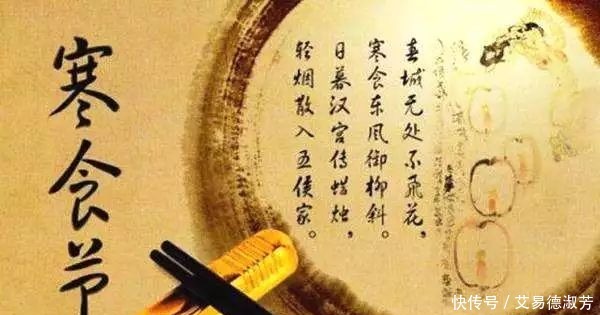 寒食节
春城无处不飛花，
寒食东风御柳斜。
日暮汉宫传蜡烛，
轻烟散入五侯家。
快传号／艾易德淑芳